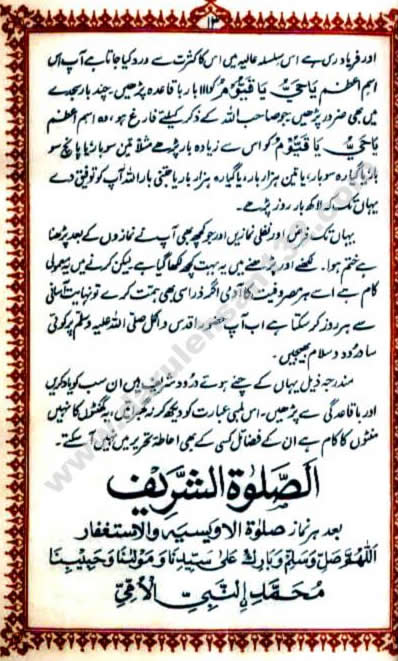 ۱۳
اور فریاد رس ہے اس سلسلہ عالیہ میں اس کا کثرت سے ورد کیا جاتا ہے آپ اس
اسم اعظم یَا حَیُّ یَا قَیُّوْمُ کو ۱۱ بار باقاعدہ پڑھیں چند بار سجدے
میں بھی ضرور پڑھیں جو صاحب اللہ کے ذکر کیلئے فارغ ہو، وہ اسم اعظم
یَا حَیُّ یَا قَیُّوْمُ کو اس سے زیادہ بار پڑھے مثلاً تین سو بار یا پانچ سو
بار یا گیارہ سو بار، یا تین ہزار بار، یا گیارہ ہزار بار یا جتنی بار اللہ آپ کو توفیق دے
یہاں تک کہ لاکھ بار روز پڑھے۔
یہاں تک فرض اور نفلی نمازیں اور جو کچھ بھی آپ نے نمازوں کے بعد پڑھنا
ہے ختم ہوا۔ لکھنے اور پڑھنے میں یہ بہت کچھ لکھا گیا ہے لیکن کرنے میں یہ معمولی
کام ہے اسے ہر مصروفیت کا آدمی اگر ذرا سی بھی ہمت کرے تو نہایت آسانی
سے ہر روز کر سکتا ہے اب آپ حضور اقدس و اکمل صلی اللہ علیہ وسلم پر کوئی
سا درود و سلام بھیجیں۔
مندرجہ ذیل یہاں کے چنے ہوئے درود شریف ہیں ان سب کو یاد کریں
اور باقاعدگی سے پڑھیں۔ اس لمبی عبارت کو دیکھ کر نہ گھبرائیں، یہ گھنٹوں کا نہیں
منٹوں کا کام ہے ان کے فضائل کسی کے بھی احاطہ تحریر میں نہیں آ سکتے۔
اَلصَّلٰوۃُ الشَّرِیْف
بعد ہر نماز صلوٰۃ الاویسیہ والاستغفار
اَللّٰھُمَّ صَلِّ وَسَلِّمْ وَبَارِکْ عَلٰی سَیِّدِنَا وَمَوْلٰنَا وَحَبِیْبِنَا
مُحَمَّدِ اِلنَّبِیِّ الْاُمِّیِّ